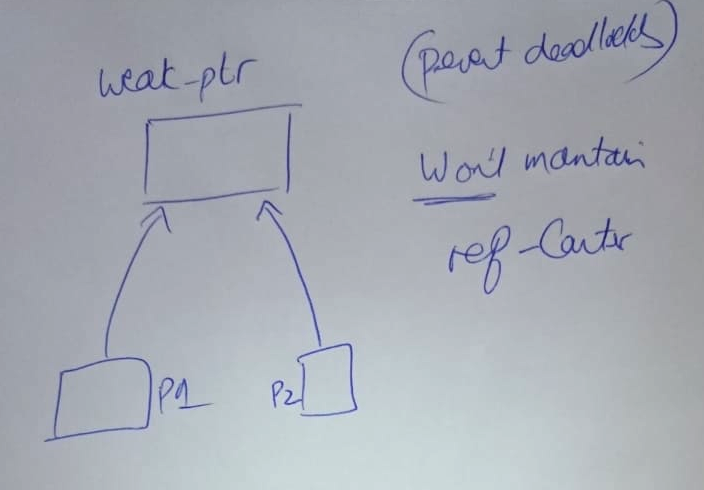 weak-ptr
(prevent deadlocks)
Won't maintain
ref-Counter
P1
P2